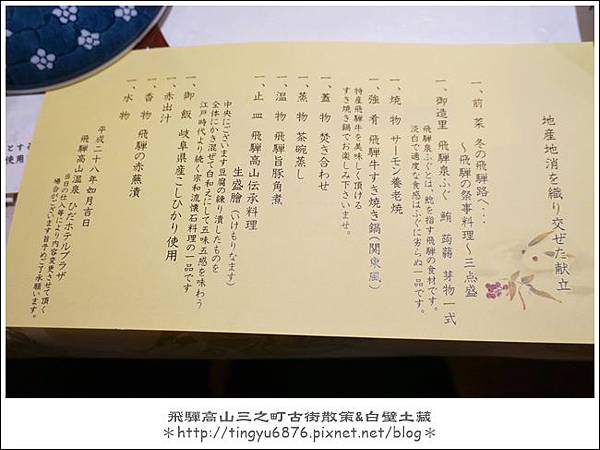 地産地消を織り交ぜた献立
一、前 菜 冬の飛騨路へ・・・
～飛騨の祭事料理～三点盛
一、御造里 飛騨泉ふぐ 鮪 蒟蒻 芽物一式
飛騨泉ふぐとは、鯰を指す飛騨の食材です。
淡白で適度な食感はふぐに劣らぬ一品です。
一、焼 物 サーモン養老焼
一、強 肴 飛騨牛すき焼き鍋(関東風)
特産飛騨牛を美味しく頂ける
すき焼き鍋でお楽しみ下さいませ。
一、蓋 物 焚き合わせ
一、蒸 物 茶碗蒸し
一、温 物 飛騨旨豚角煮
一、止 皿 飛騨高山伝承料理
生盛膾(いけもりなます)
中央にございます豆腐の練り潰したものを
全体にかき混ぜて白和えにして五味五感を味わう
江戸時代より続く宗和流懐石料理の一品です
一、御 飯 岐阜県産こしひかり使用
一、赤出汁
一、香 物 飛騨の赤蕪漬
一、水 物
平成二十八年如月吉日
飛騨高山温泉 ひだホテルプラザ
当日の仕入等により内容変更させて頂く
場合がございます旨予めご了承願います。
とする
使用
飛驒高山三之町古街散策&白壁土藏
＊http://tingyu6876.pixnet.net/blog＊